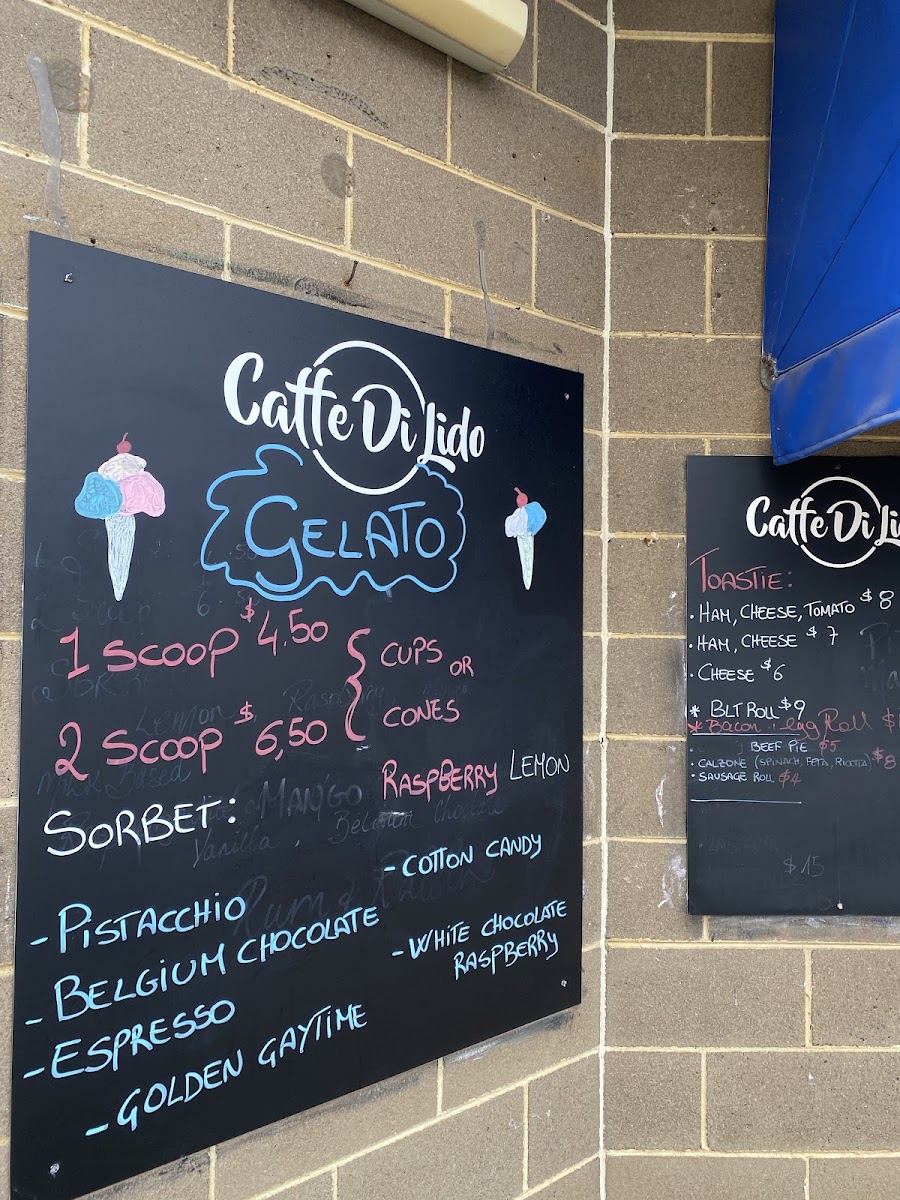 Caffe Di Lido
GELATO
1 SCOOP $4.50
2 SCOOP $6,50
CUPS OR
CONES
SORBET: MANGO RASPBERRY LEMON
- PISTACCHIO
- BELGIUM CHOCOLATE
- ESPRESSO
- GOLDEN GAYTIME
- COTTON CANDY
- WHITE CHOCOLATE
RASPBERRY
Caffe Di Li
TOASTIE:
· HAM, CHEESE, TOMATO $8
· HAM, CHEESE $7
· CHEESE $6
* BLT ROLL $9
* Bacon & egg Roll $
· BEEF PIE $5
· CALZONE (SPINACH, FETA, RICOTTA) $8
· SAUSAGE ROLL $4
$15